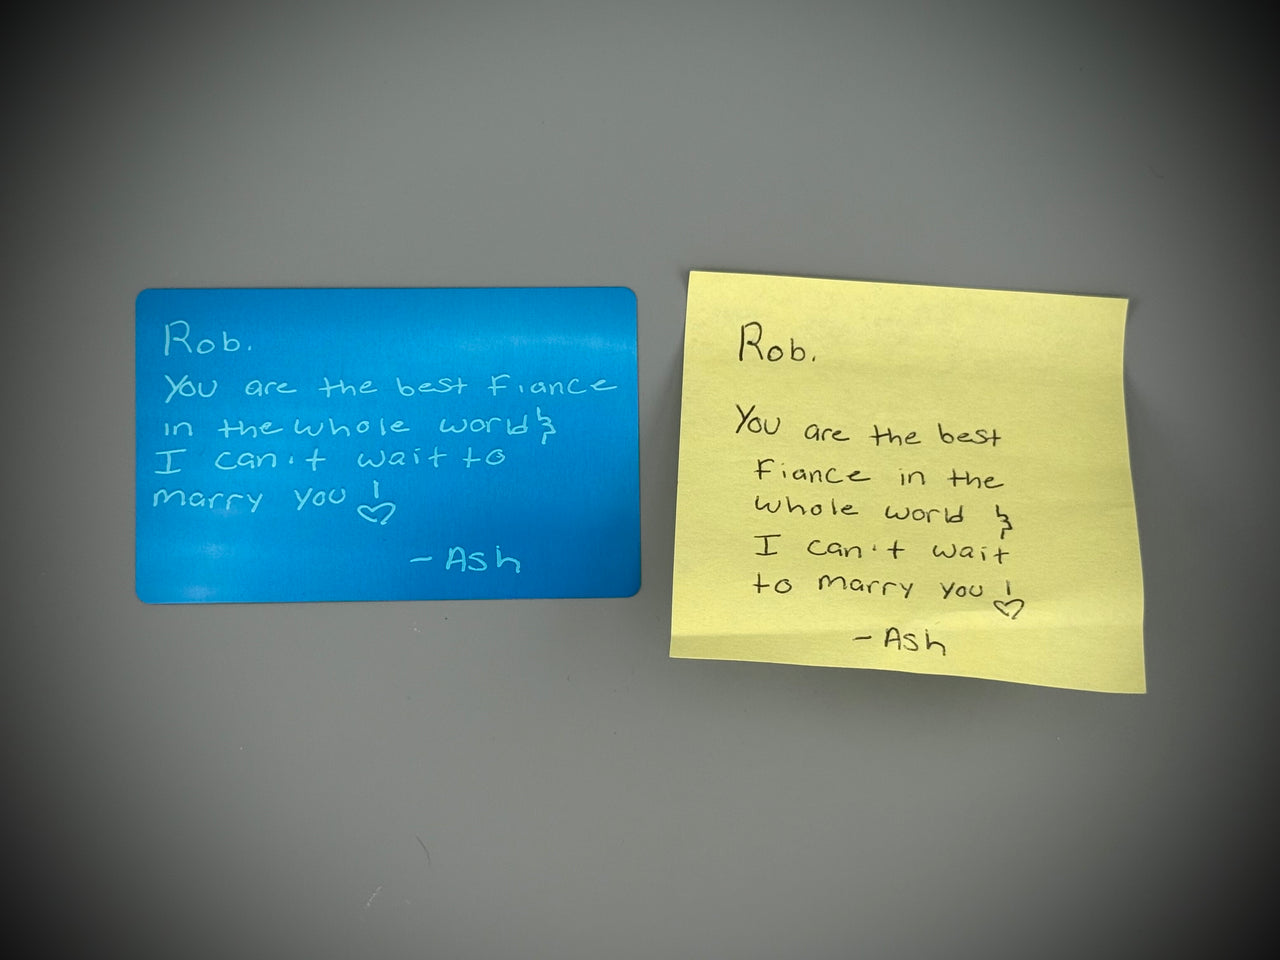 Rob.
You are the best Fiance
in the whole world &
I can't wait to
marry you!
- Ash
Rob.
You are the best
Fiance in the
whole world &
I can't wait
to marry you!
- Ash